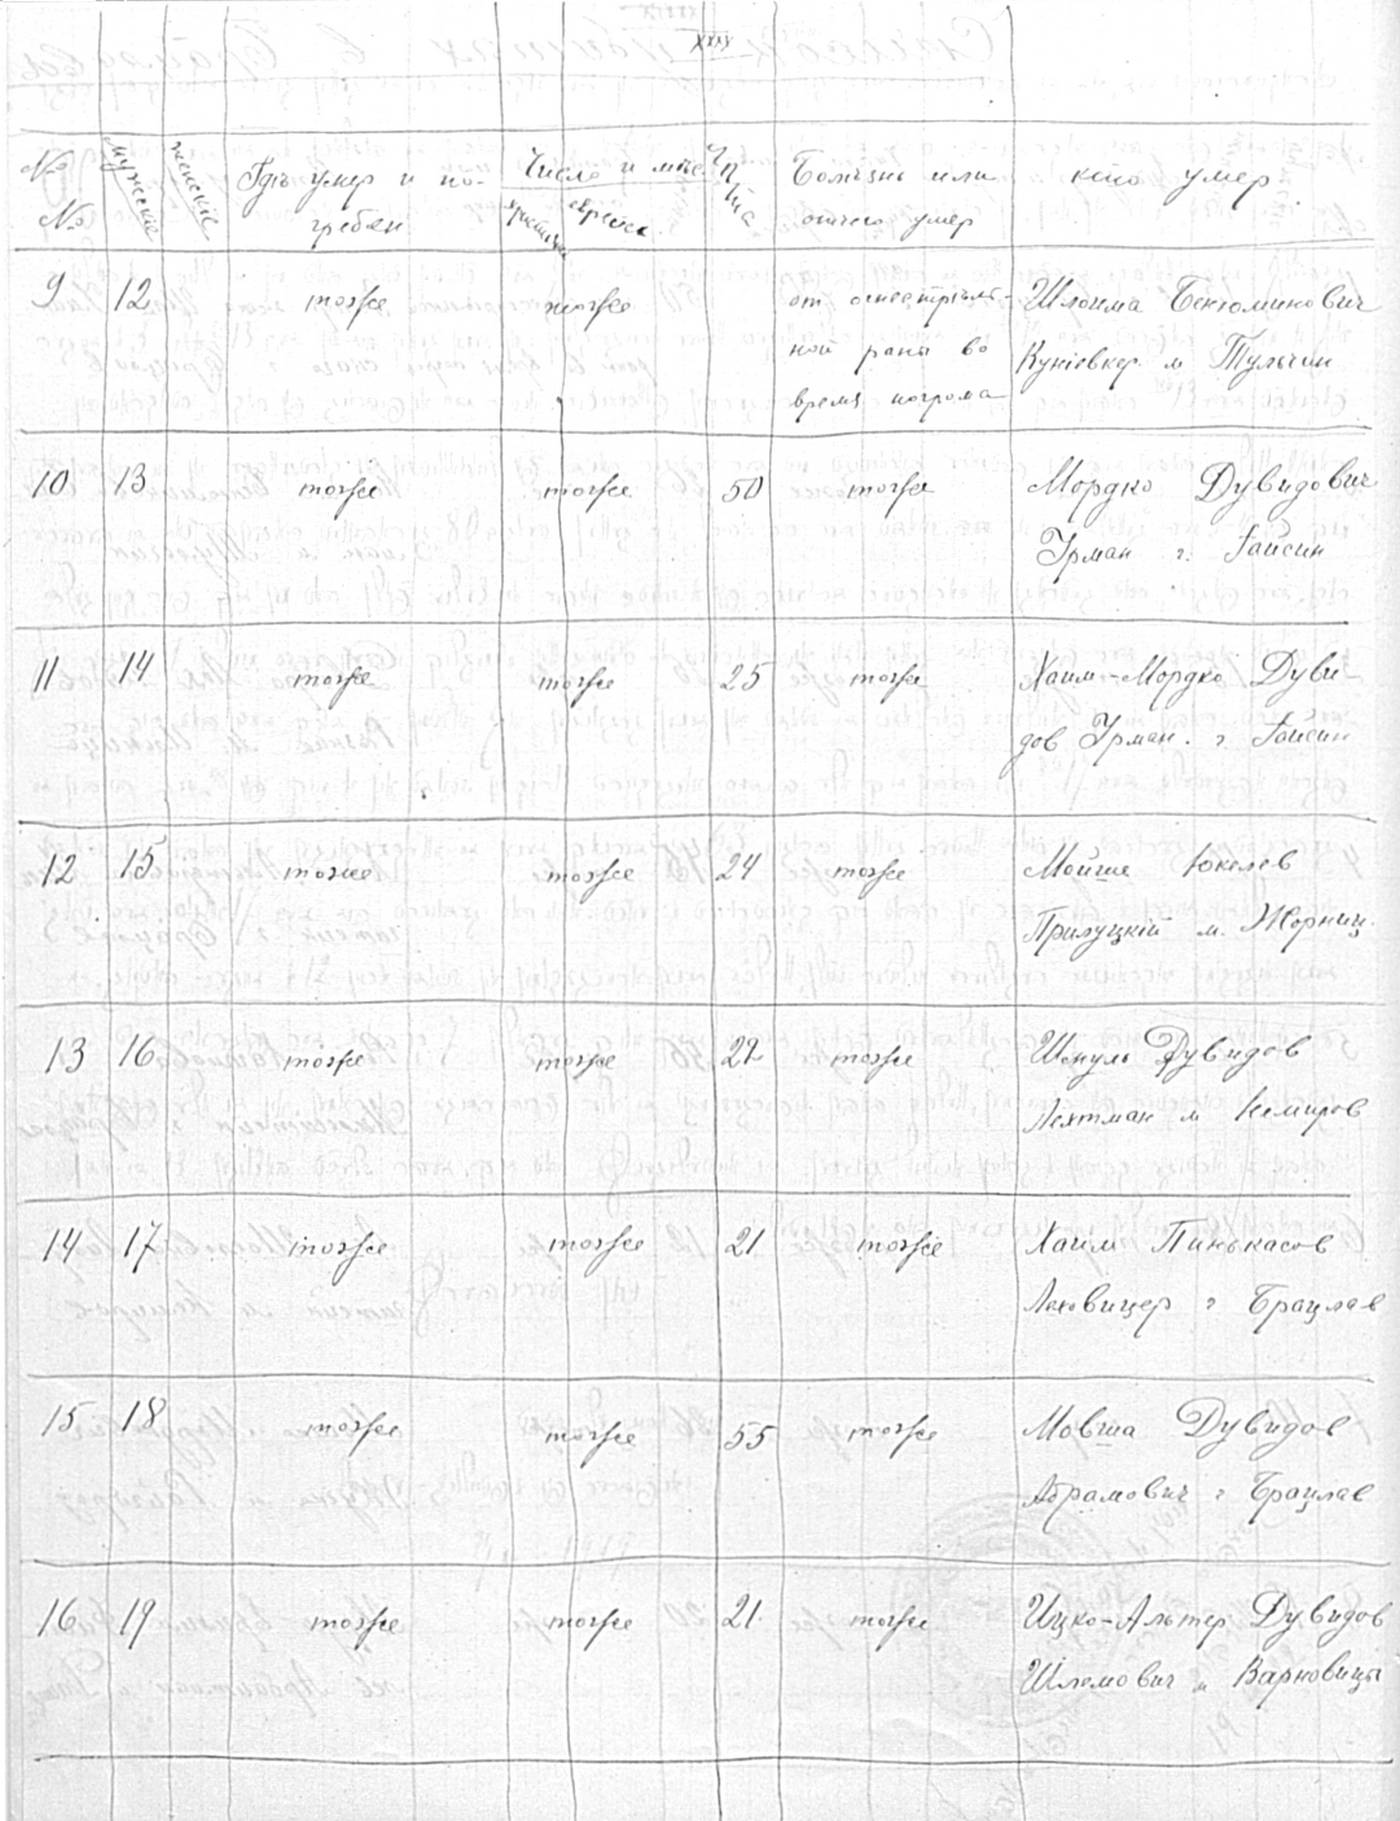 № №
мужскіе
женскіе
Гдѣ умер и по-
гребен
Число и мѣс.
христіан
еврейск.
Лѣта
Болѣзнь или
отчего умер
кто умер.
9 12 тоже тоже от огнестрѣль- Шлоима Бенюминович
ной раны во м Тульчин
время погрома
10 13 тоже тоже 50 тоже Мордко Дувидович
Урман г. Гайсин
11 14 тоже тоже 25 тоже Хаим-Мордко Дуви-
дов Урман. г Гайсин
12 15 тоже тоже 24 тоже Мойше Юкелев
Прилуцкій м. Жорнищ.
13 16 тоже тоже 22 тоже Шмуль Дувидов
Лехтман м Немиров
14 17 тоже тоже 21 тоже Хаим Пинькасов
Лековицер г Брацлав
15 18 тоже тоже 55 тоже Мовша Дувидов
Абрамович г Брацлав
16 19 тоже тоже 21. тоже Ицко-Альтер Дувидов
Шлемович м Варновицы